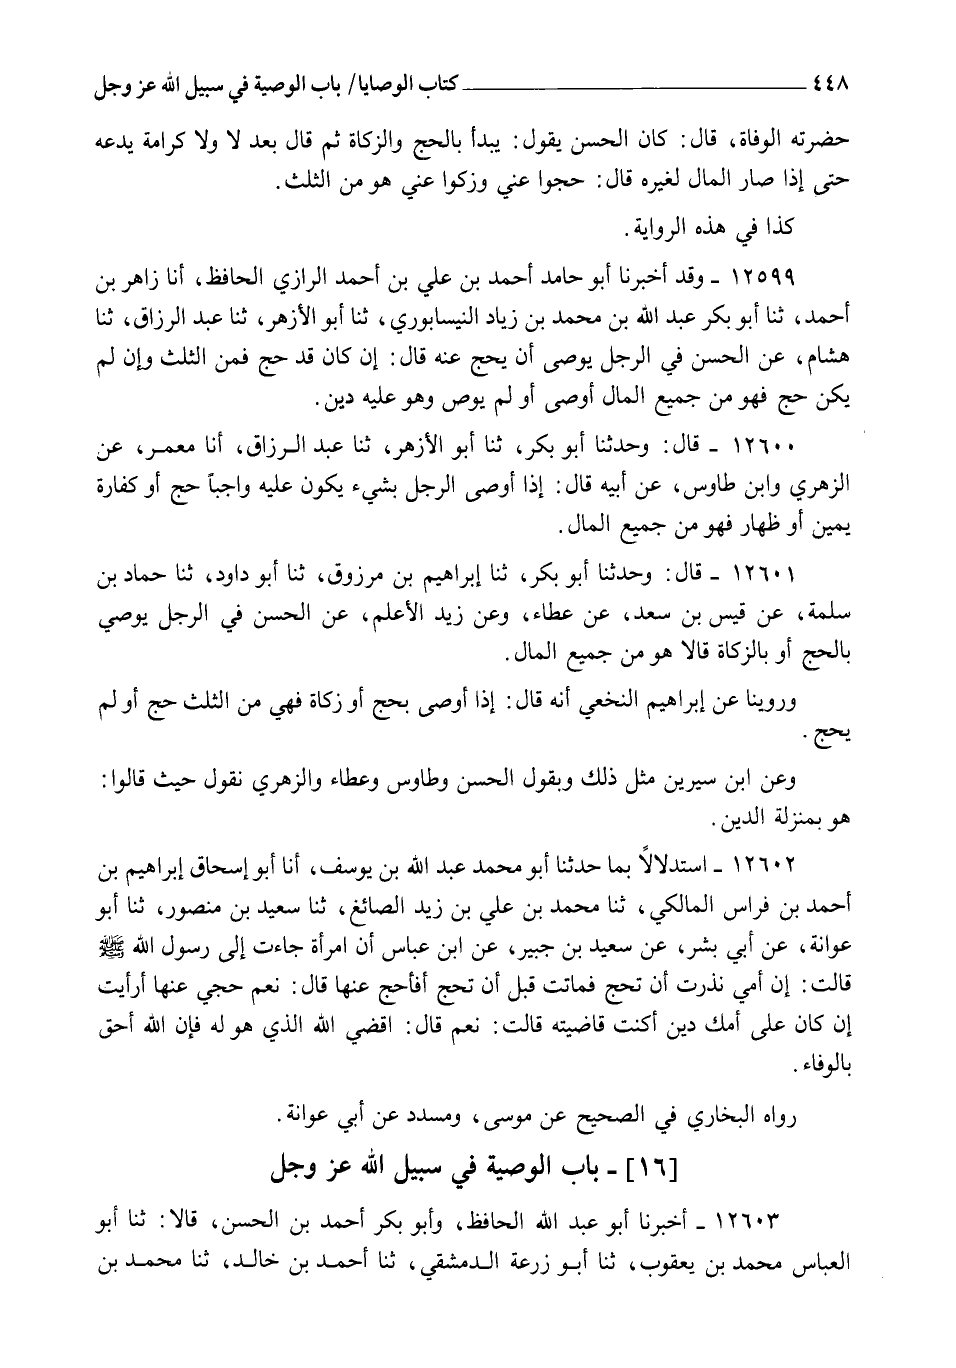 ٤٤٨ ــــــــــــــــــــ كتاب الوصايا/ باب الوصية في سبيل الله عز وجل
حضرته الوفاة، قال: كان الحسن يقول: يبدأ بالحج والزكاة ثم قال بعد لا ولا كرامة يدعه
حتى إذا صار المال لغيره قال: حجوا عني وزكوا عني هو من الثلث.
كذا في هذه الرواية.
١٢٥٩٩ ـ وقد أخبرنا أبو حامد أحمد بن علي بن أحمد الرازي الحافظ، أنا زاهر بن
أحمد، ثنا أبو بكر عبد الله بن محمد بن زياد النيسابوري، ثنا أبو الأزهر، ثنا عبد الرزاق، ثنا
هشام، عن الحسن في الرجل يوصى أن يحج عنه قال: إن كان قد حج فمن الثلث وإن لم
يكن حج فهو من جميع المال أوصى أو لم يوص وهو عليه دين.
١٢٦٠٠ ـ قال: وحدثنا أبو بكر، ثنا أبو الأزهر، ثنا عبد الرزاق، أنا معمر، عن
الزهري وابن طاوس، عن أبيه قال: إذا أوصى الرجل بشيء يكون عليه واجباً حج أو كفارة
يمين أو ظهار فهو من جميع المال.
١٢٦٠١ ـ قال: وحدثنا أبو بكر، ثنا إبراهيم بن مرزوق، ثنا أبو داود، ثنا حماد بن
سلمة، عن قيس بن سعد، عن عطاء، وعن زيد الأعلم، عن الحسن في الرجل يوصي
بالحج أو بالزكاة قالا هو من جميع المال.
وروينا عن إبراهيم النخعي أنه قال: إذا أوصى بحج أو زكاة فهي من الثلث حج أو لم
يحج.
وعن ابن سيرين مثل ذلك وبقول الحسن وطاوس وعطاء والزهري نقول حيث قالوا:
هو بمنزلة الدين.
١٢٦٠٢ ـ استدلالاً بما حدثنا أبو محمد عبد الله بن يوسف، أنا أبو إسحاق إبراهيم بن
أحمد بن فراس المالكي، ثنا محمد بن علي بن زيد الصائغ، ثنا سعيد بن منصور، ثنا أبو
عوانة، عن أبي بشر، عن سعيد بن جبير، عن ابن عباس أن امرأة جاءت إلى رسول الله ﷺ
قالت: إن أمي نذرت أن تحج فماتت قبل أن تحج أفأحج عنها قال: نعم حجي عنها أرأيت
إن كان على أمك دين أكنت قاضيته قالت: نعم قال: اقضي الله الذي هو له فإن الله أحق
بالوفاء.
رواه البخاري في الصحيح عن موسى، ومسدد عن أبي عوانة.
[١٦] ـ باب الوصية في سبيل الله عز وجل
١٢٦٠٣ ـ أخبرنا أبو عبد الله الحافظ، وأبو بكر أحمد بن الحسن، قالا: ثنا أبو
العباس محمد بن يعقوب، ثنا أبو زرعة الدمشقي، ثنا أحمد بن خالد، ثنا محمد بن